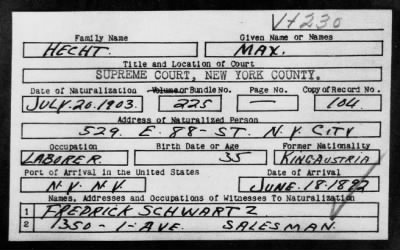 V+230
Family Name Given Name or Names
HECHT. MAX.
Title and Location of Court
SUPREME COURT, NEW YORK COUNTY.
Date of Naturalization Volume or Bundle No. Page No. Copy of Record No.
JULY. 20. 1903. 225 — 104.
Address of Naturalized Person
529. E. 88- ST. N.Y. CITY
Occupation Birth Date or Age Former Nationality
LABORER. 35 KING AUSTRIA
Port of Arrival in the United States Date of Arrival
N.Y. N.Y. JUNE. 18. 1892
Names, Addresses and Occupations of Witnesses To Naturalization
1 FREDRICK SCHWARTZ
2 1350 - 1- AVE. SALESMAN.